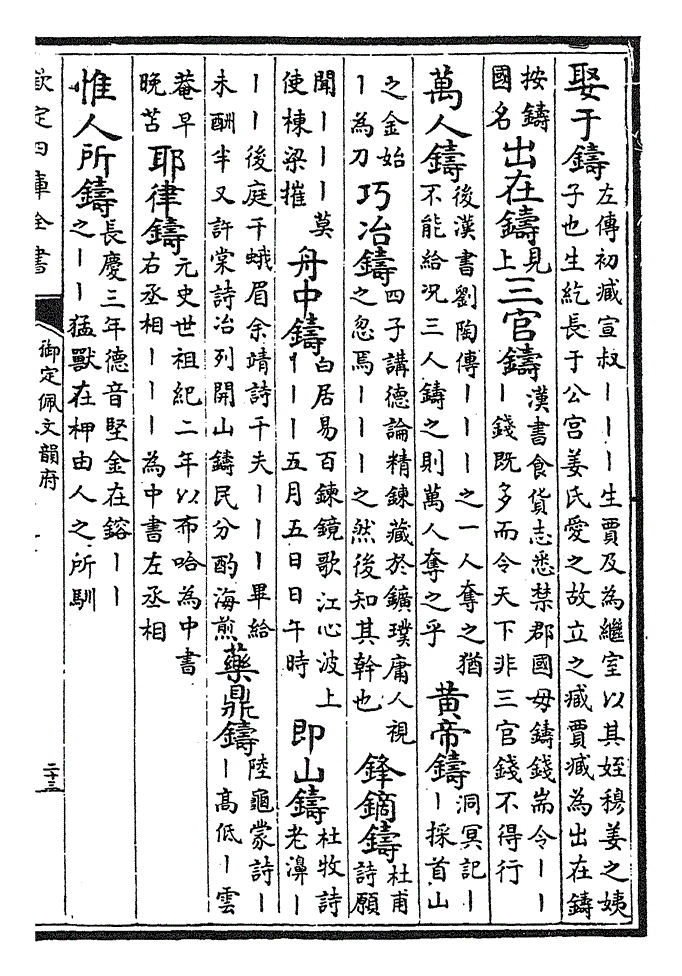 娶于鑄左傳初臧宣叔丨丨丨生賈及為繼室以其姪穆姜之姨子也生紇長于公宮姜氏愛之故立之臧賈臧為出在鑄
按鑄國名出在鑄見上三官鑄漢書食貨志悉禁郡國毋鑄錢耑令丨丨丨錢既多而令天下非三官錢不得行
萬人鑄後漢書劉陶傳丨丨丨之一人奪之猶不能給况三人鑄之則萬人奪之乎黄帝鑄洞冥記丨丨採首山
之金始丨為刀巧冶鑄四子講德論精鍊藏於鑛璞庸人視之忽焉丨丨丨之然後知其幹也鋒鏑鑄杜甫詩願
聞丨丨丨莫使棟梁摧舟中鑄白居易百鍊鏡歌江心波上丨丨丨五月五日日午時即山鑄杜牧詩老濞丨
丨丨後庭千蛾眉余靖詩千夫丨丨丨畢給未酬半又許棠詩冶列開山鑄民分酌海煎藥鼎鑄陸龜蒙詩丨丨髙低丨雲
菴早晚苫耶律鑄元史世祖紀二年以布哈為中書右丞相丨丨丨為中書左丞相
惟人所鑄長慶三年德音堅金在鎔丨丨之丨丨猛獸在柙由人之所馴
欽定四庫全書
御定佩文韻府
二十三